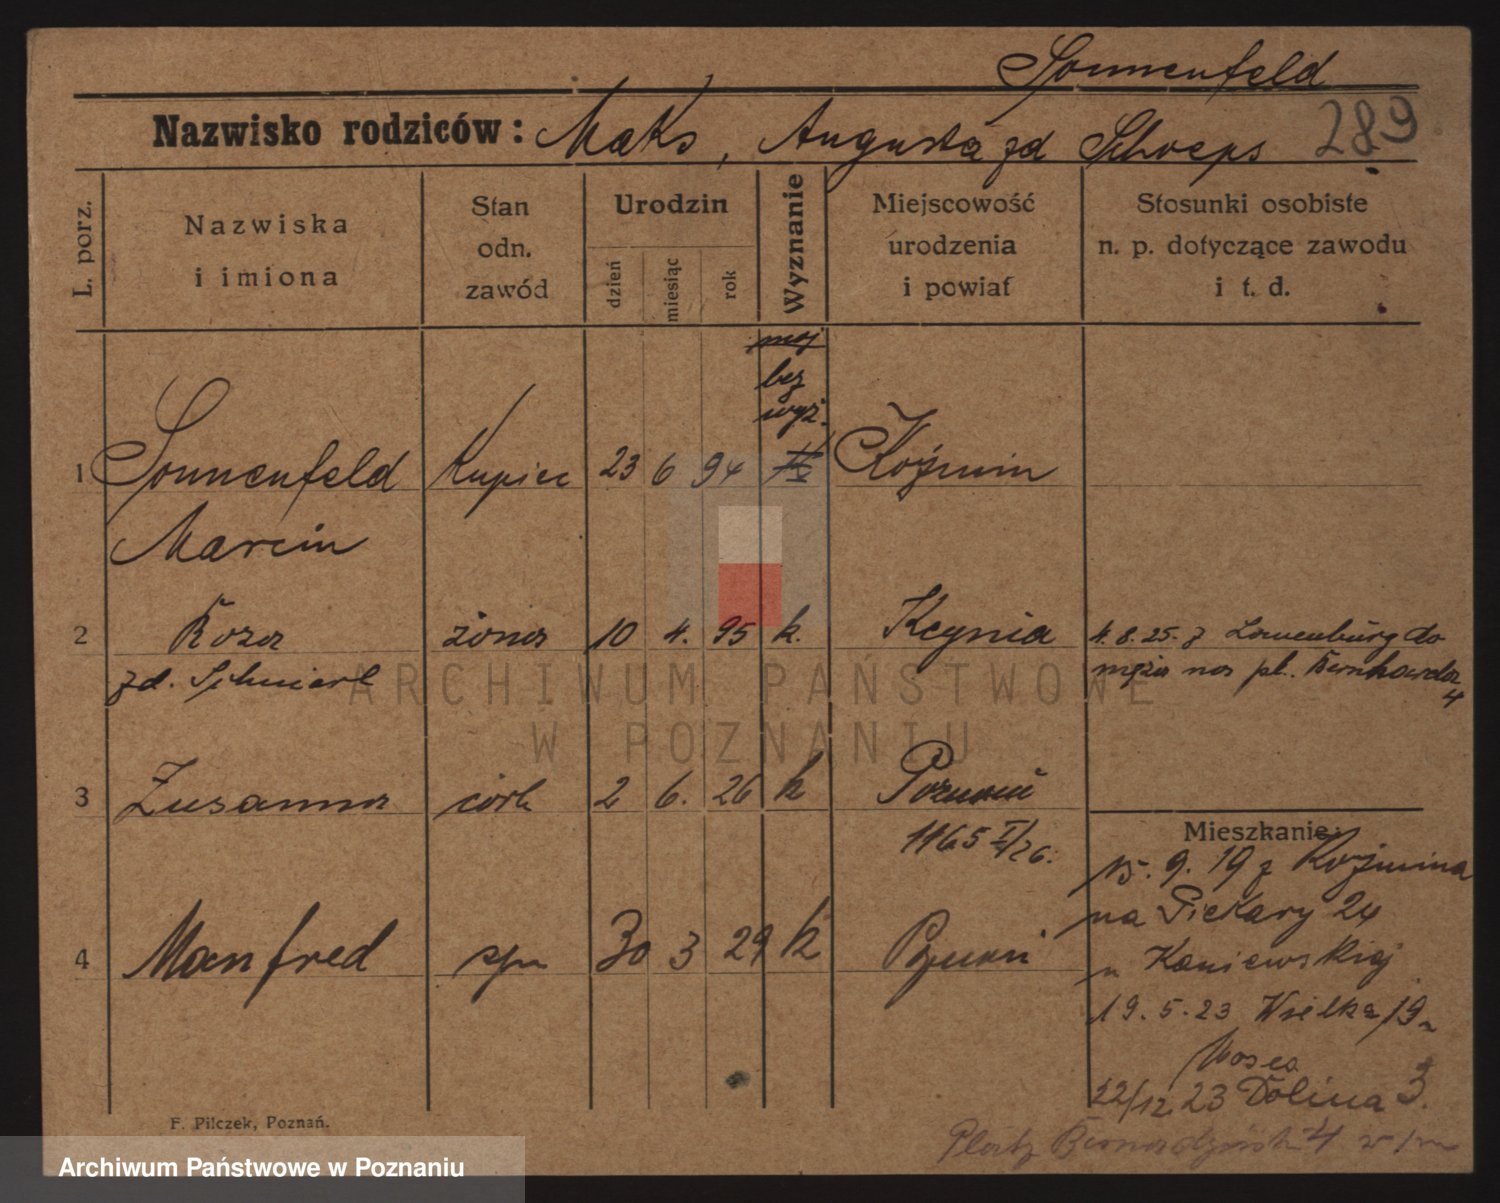 Sonnenfeld
Nazwisko rodziców: Maks, Augusta zd Schoeps 289
L. porz.
Nazwiska
i imiona
Stan
odn.
zawód
Urodzin
dzień
miesiąc
rok
Wyznanie
Miejscowość
urodzenia
i powiat
Stosunki osobiste
n. p. dotyczące zawodu
i t. d.
moj
bez
wyz.
1 Sonnenfeld Kupiec 23 6 94 Koźmin
Marcin
2 Roza żona 10 4. 95 k. Kcynia 4.8.25. z Lauenburg do
zd. męża na pl. 4
3 Zusanna córk 2 6. 26 k Poznań
1165 26.
Mieszkanie:
15. 9. 19 z Koźmina
na Piekary 24
u Kaniewskiej
4 Manfred syn 30 3 29 k Poznań
19. 5. 23 Wielka 19
22/12 23 Dolina 3.
F. Pilczek, Poznań.
ARCHIWUM PAŃSTWOWE
W POZNANIU
Archiwum Państwowe w Poznaniu